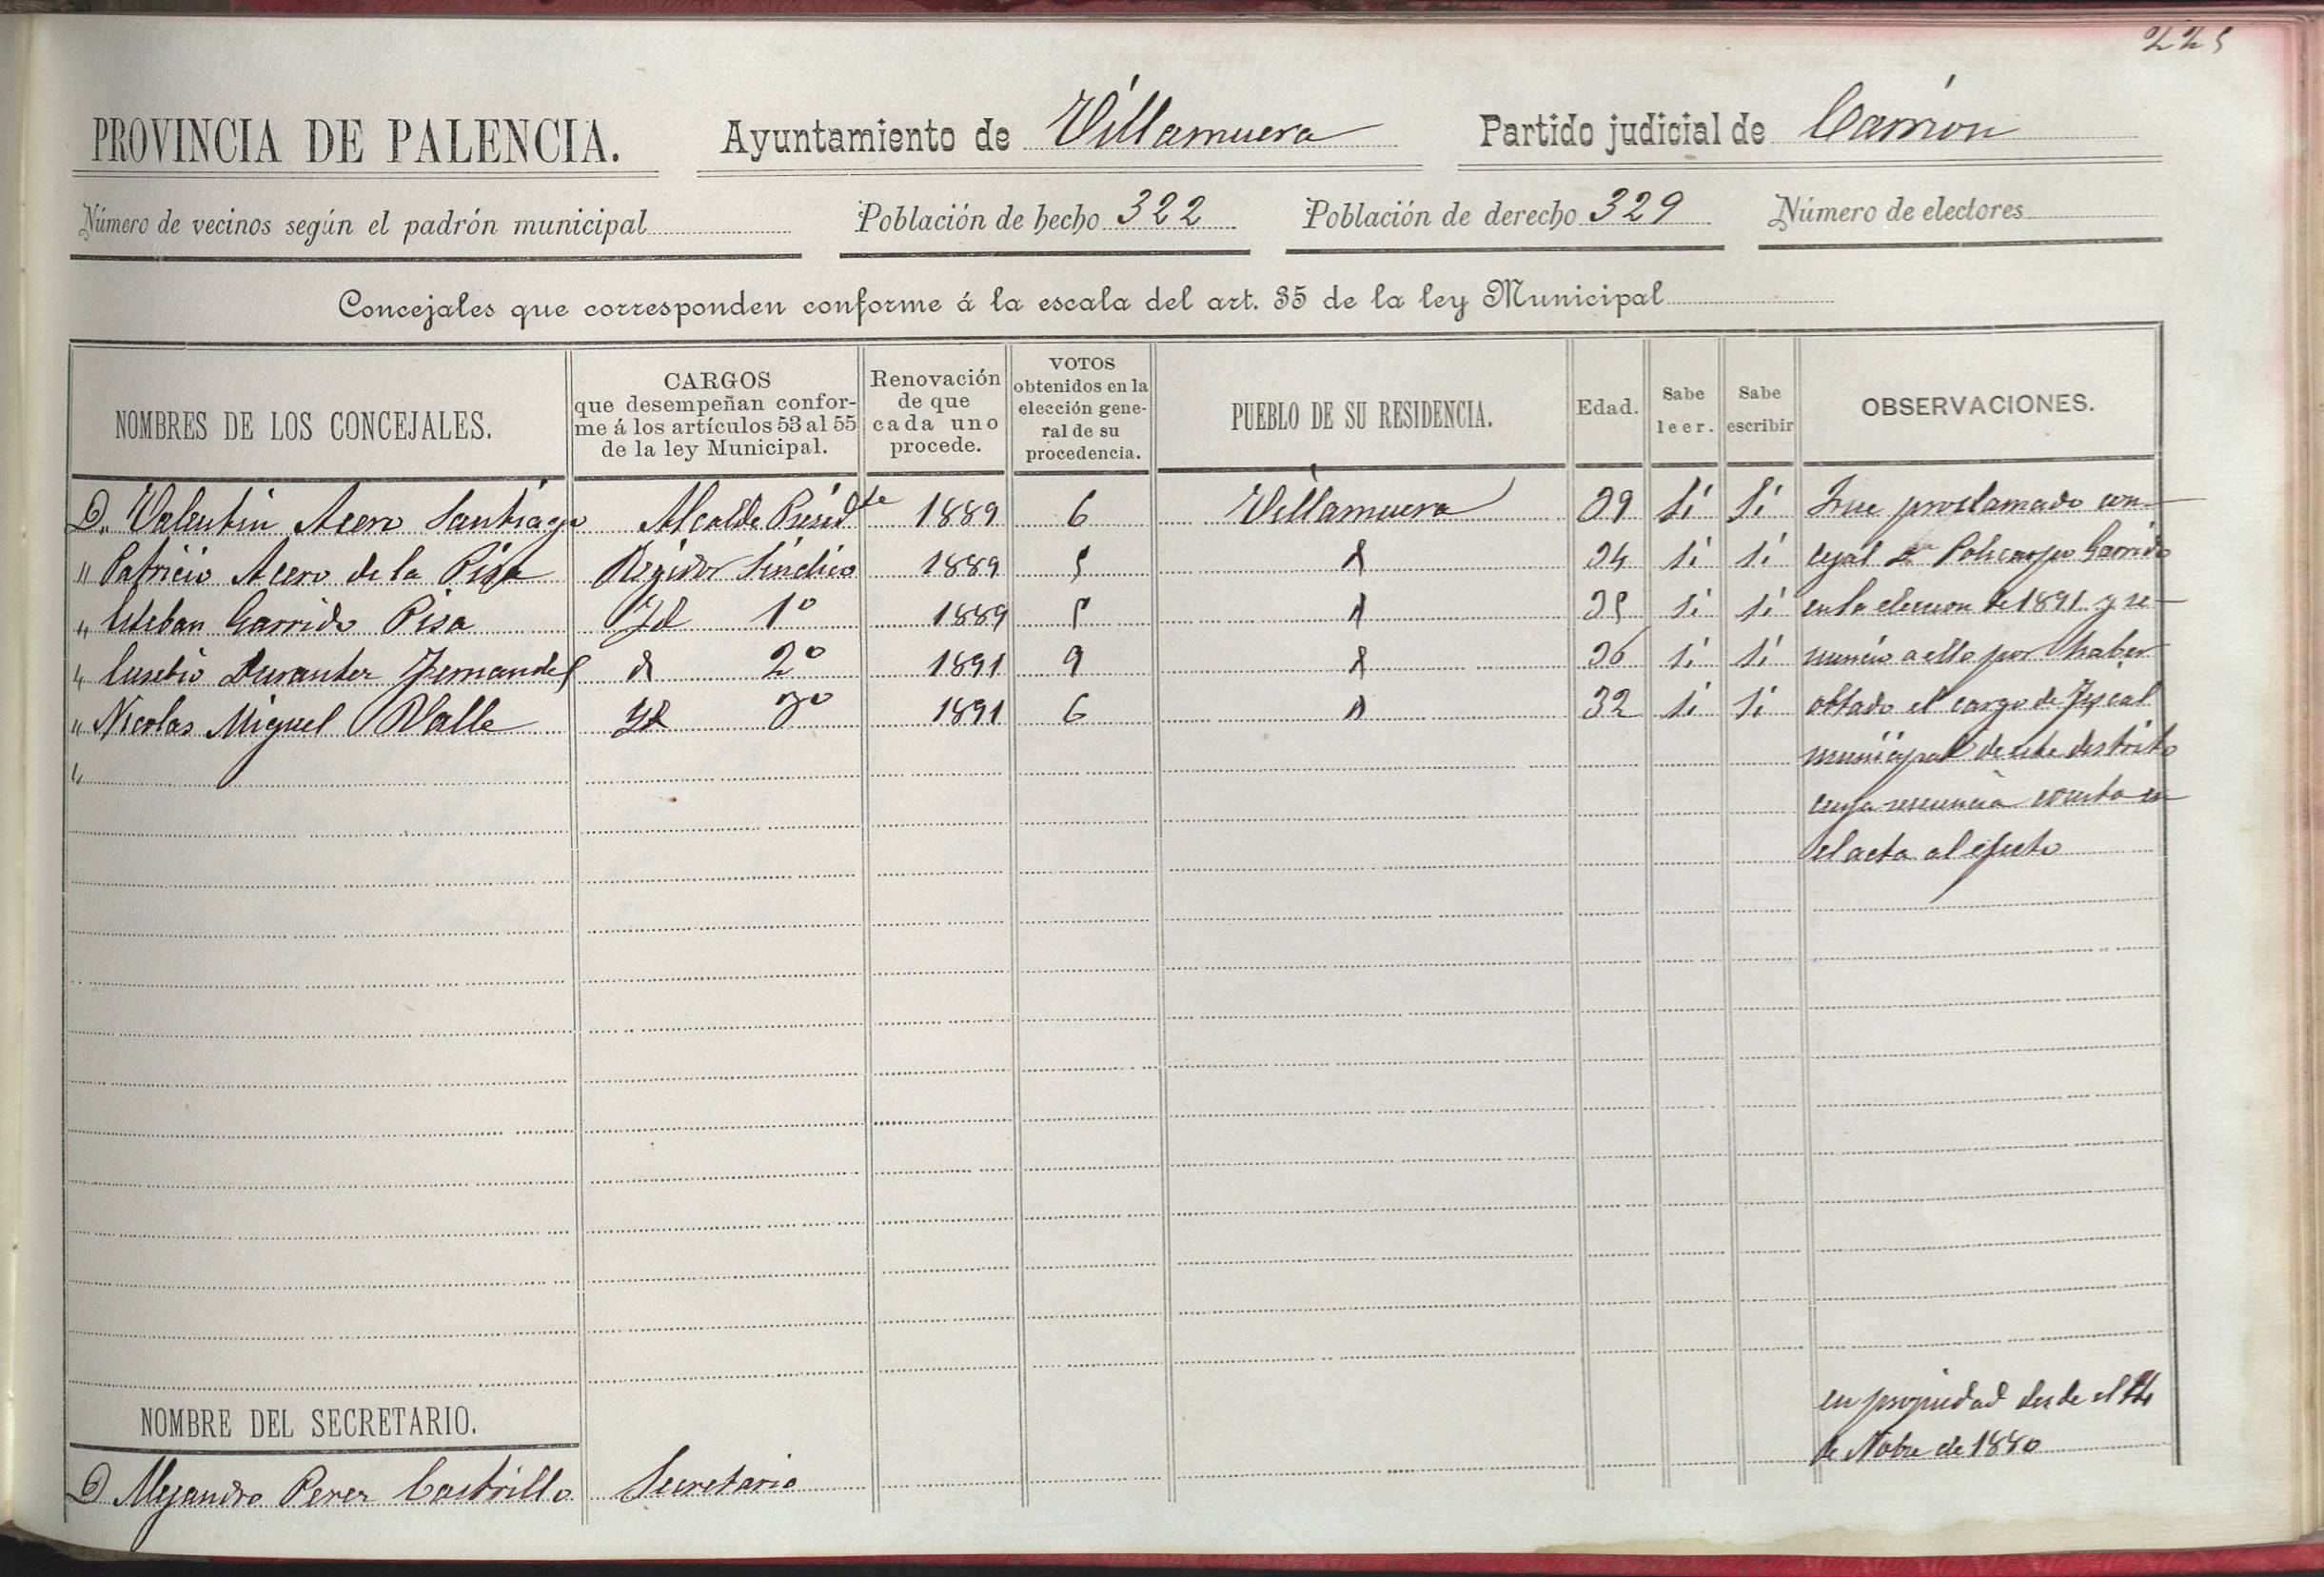 225
PROVINCIA DE PALENCIA. Ayuntamiento de Villamuera Partido judicial de Carrion
Número de vecinos según el padrón municipal Población de hecho 322 Población de derecho 329 Número de electores
Concejales que corresponden conforme á la escala del art. 35 de la ley Municipal
NOMBRES DE LOS CONCEJALES.
CARGOS
que desempeñan confor-
me á los artículos 53 al 55
de la ley Municipal.
Renovación
de que
cada uno
procede.
VOTOS
obtenidos en la
elección gene-
ral de su
procedencia.
PUEBLO DE SU RESIDENCIA.
Edad.
Sabe
leer.
Sabe
escribir
OBSERVACIONES.
D. Valentin Acero Santiago Alcalde Presid.te 1889 6 Villamuera 39 Si Si Fue proclamado con-
" Patricio Acero de la Pisa Regidor Sindico 1889 5 34 si si cejal Dn Policarpo Garrido
" Esteban Garrido Pisa Id 1º 1889 5 35 si si en la eleccion de 1891 y re-
" Eusebio Durantez Fernandez 2º 1891 9 36 si si nuncio a ello por haber
" Nicolas Miguel Valle Id 3º 1891 6 32 si si obtado el cargo de Fiscal
" municipal de este distrito
cuya renuncia consta en
el acta al efecto
NOMBRE DEL SECRETARIO.
en propiedad desde el
de Nobre de 1880
D Alejandro Perez Castrillo Secretario